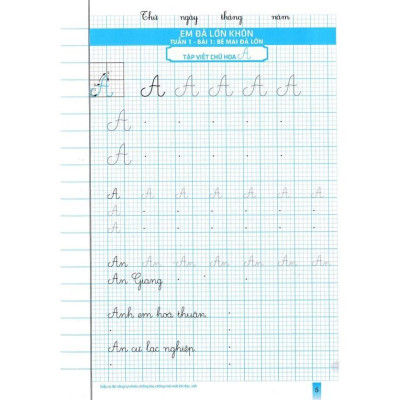 Thứ ngày tháng năm
EM ĐÃ LỚN KHÔN
TUẦN 1 - BÀI 1: BÉ MAI ĐÃ LỚN
TẬP VIẾT CHỮ HOA A
A A A A A A
A
A
A A A A A A A
A
A
An An An An An An An
An Giang
Anh em hoà thuận.
An cư lạc nghiệp.
5